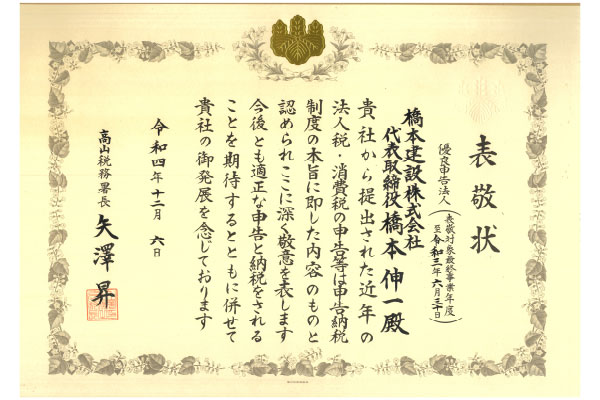 表敬状
優良申告法人
(表敬対象最終事業年度
至令和三年六月三十日)
橋本建設株式会社
代表取締役橋本伸一殿
貴社から提出された近年の
法人税・消費税の申告等は申告納税
制度の本旨に即した内容のものと
認められここに深く敬意を表します
今後とも適正な申告と納税をされる
ことを期待するとともに併せて
貴社の御発展を念じております
令和四年十二月六日
高山税務署長 矢澤昇